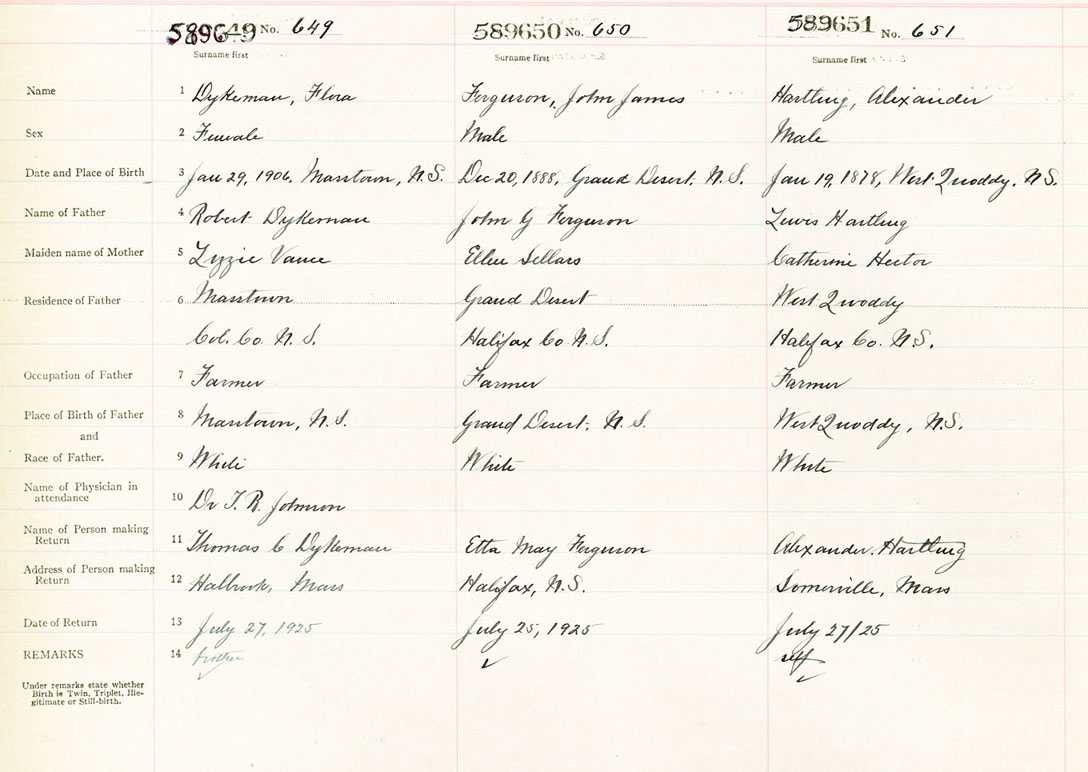 589649 No. 649 589650 No. 650 589651 No. 651
Surname first Surname first Surname first
Name 1 Dykeman, Flora Ferguson, John James Hartling, Alexander
Sex 2 Female Male Male
Date and Place of Birth 3 Jan 29, 1906, Masstown, N.S. Dec 20, 1888, Grand Desert, N.S. Jan 19, 1878, West Quoddy, N.S.
Name of Father 4 Robert Dykeman John G Ferguson Lewis Hartling
Maiden name of Mother 5 Lizzie Vance Ellen Sellars Catherine Hector
Residence of Father 6 Masstown Grand Desert West Quoddy
Col. Co. N.S. Halifax Co N.S. Halifax Co. N.S.
Occupation of Father 7 Farmer Farmer Farmer
Place of Birth of Father 8 Masstown, N.S. Grand Desert, N.S. West Quoddy, N.S.
and
Race of Father. 9 White White White
Name of Physician in
attendance 10 Dr T. R. Johnson
Name of Person making
Return 11 Thomas C Dykeman Etta May Ferguson Alexander Hartling
Address of Person making
Return 12 Halbrook, Mass Halifax, N.S. Somerville, Mass
Date of Return 13 July 27, 1925 July 25, 1925 July 27/25
REMARKS 14 brother self
Under remarks state whether
Birth is Twin, Triplet, Ille-
gitimate or Still-birth.